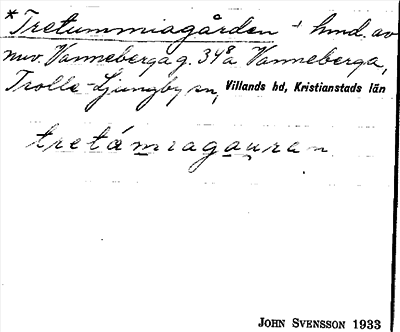 *Tretummiagården - hmd. av
nuv. Vannebergag. 34⁸a Vanneberga,
Trolle-Ljungby sn, Villands hd, Kristianstads län
tretámiagauran
JOHN SVENSSON 1933